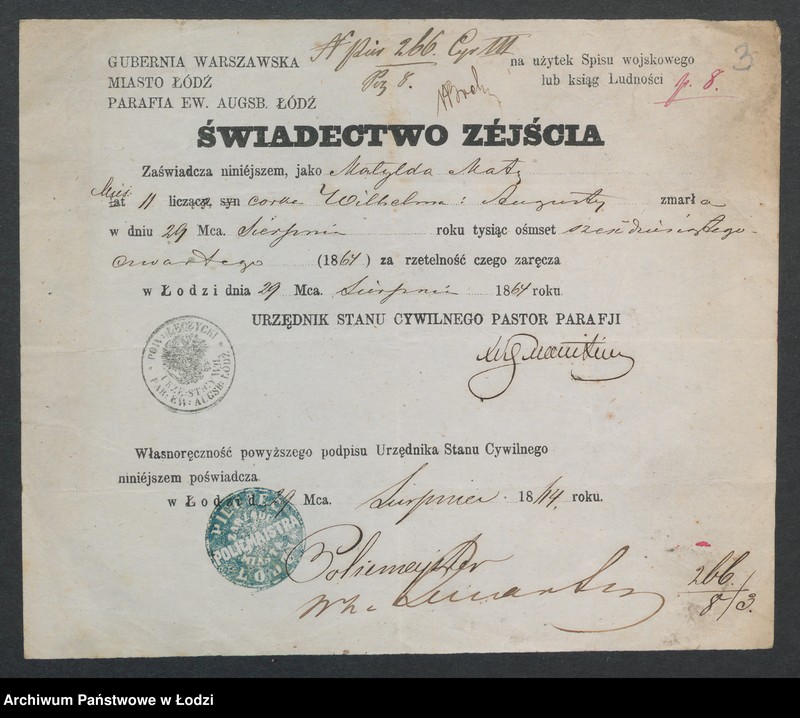 N pis 266. Cyr III
Poz 8.
3
GUBERNIA WARSZAWSKA
MIASTO ŁÓDŹ
PARAFIA EW. AUGSB. ŁÓDŹ
na użytek Spisu wojskowego
lub ksiąg Ludności
p. 8.
ŚWIADECTWO ZÉJŚCIA
Zaświadcza niniéjszem, jako Matylda Matz
Mies. lat 11 licząca, syn corka Wilhelma i Augusty zmarła
w dniu 29 Mca. Sierpnia roku tysiąc ośmset sześdziesiątego
czwartego (1864) za rzetelność czego zaręcza
w Łodzi dnia 29 Mca. Sierpnia 1864 roku.
URZĘDNIK STANU CYWILNEGO PASTOR PARAFJI
POW. ŁĘCZYCKI
URZE. STA. CYWIL
PAR. EW. AUGSB. ŁÓDŹ
Własnoręczność powyższego podpisu Urzędnika Stanu Cywilnego
niniéjszem poświadcza
w Łodzi d. 29 Mca. Sierpnia 1864. roku.
POLICMAJSTRA
ŁODZI
Policmajster
266.
8/3.
Archiwum Państwowe w Łodzi